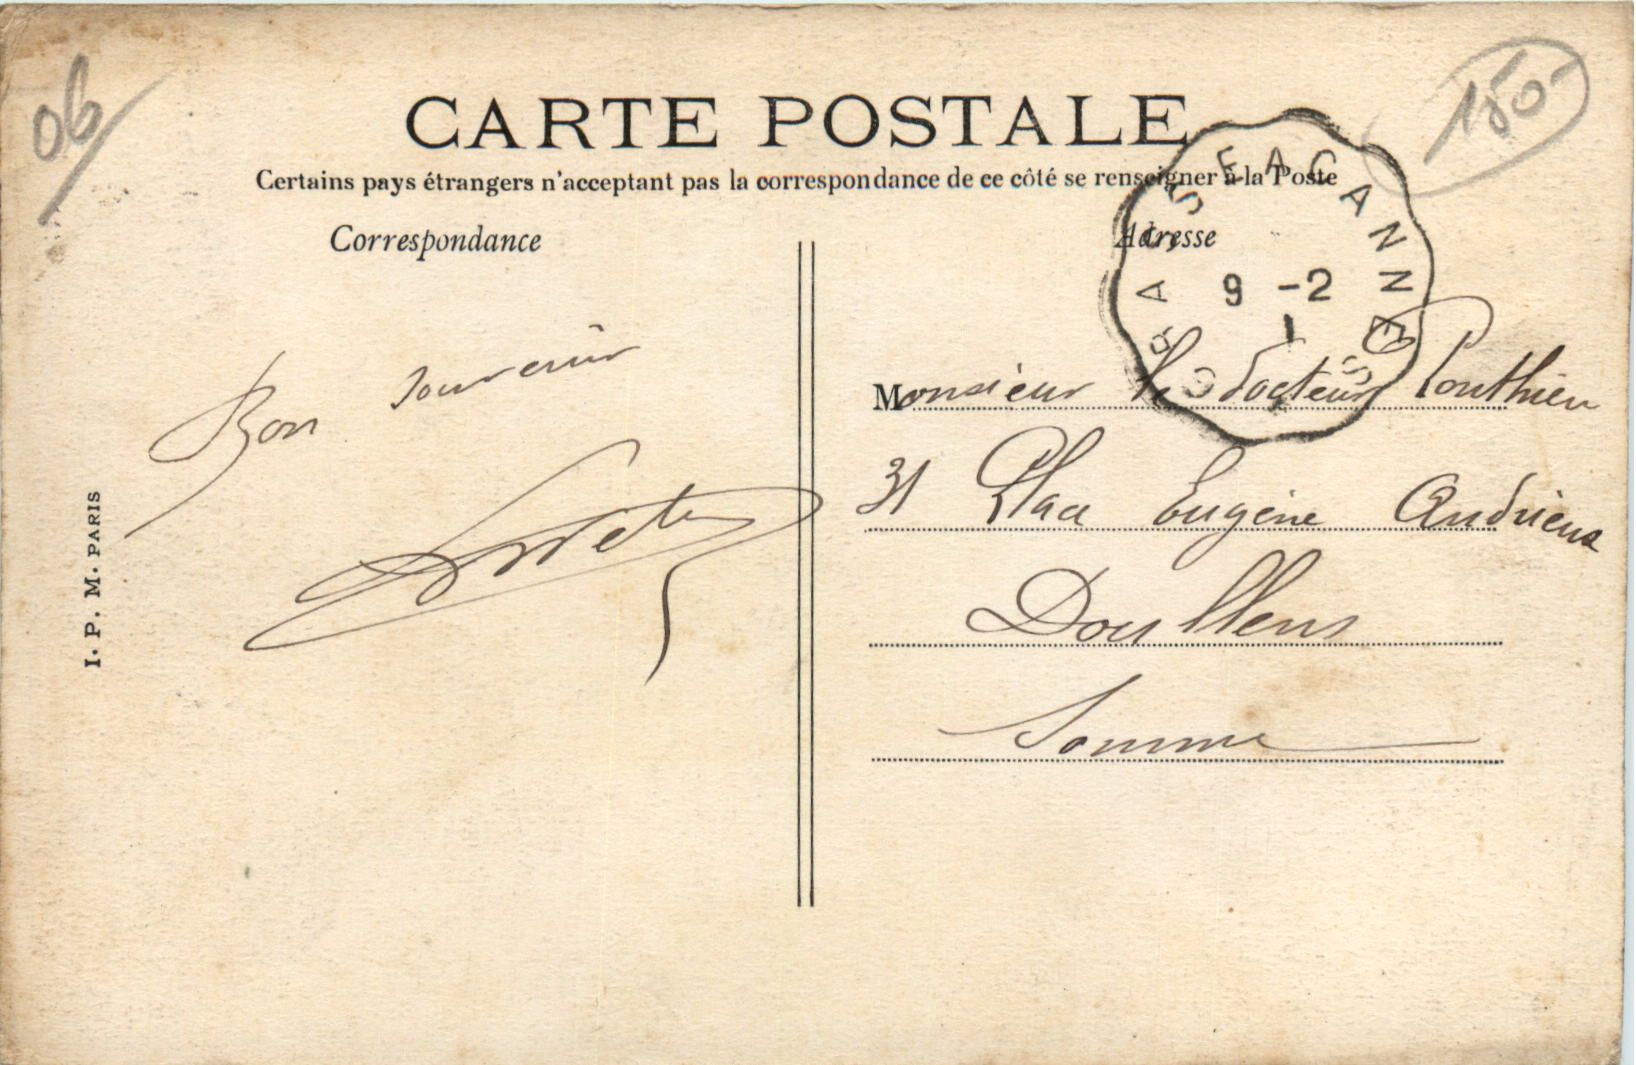 06
150-
CARTE POSTALE
Certains pays étrangers n'acceptant pas la correspondance de ce côté se renseigner à la Poste
Correspondance
Bon souvenir
I. P. M. PARIS
Adresse
GRASSE A CANNES
9 -2
Monsieur le Docteur Ponthieu
31 Place Eugène Andrieux
Doullens
Somme